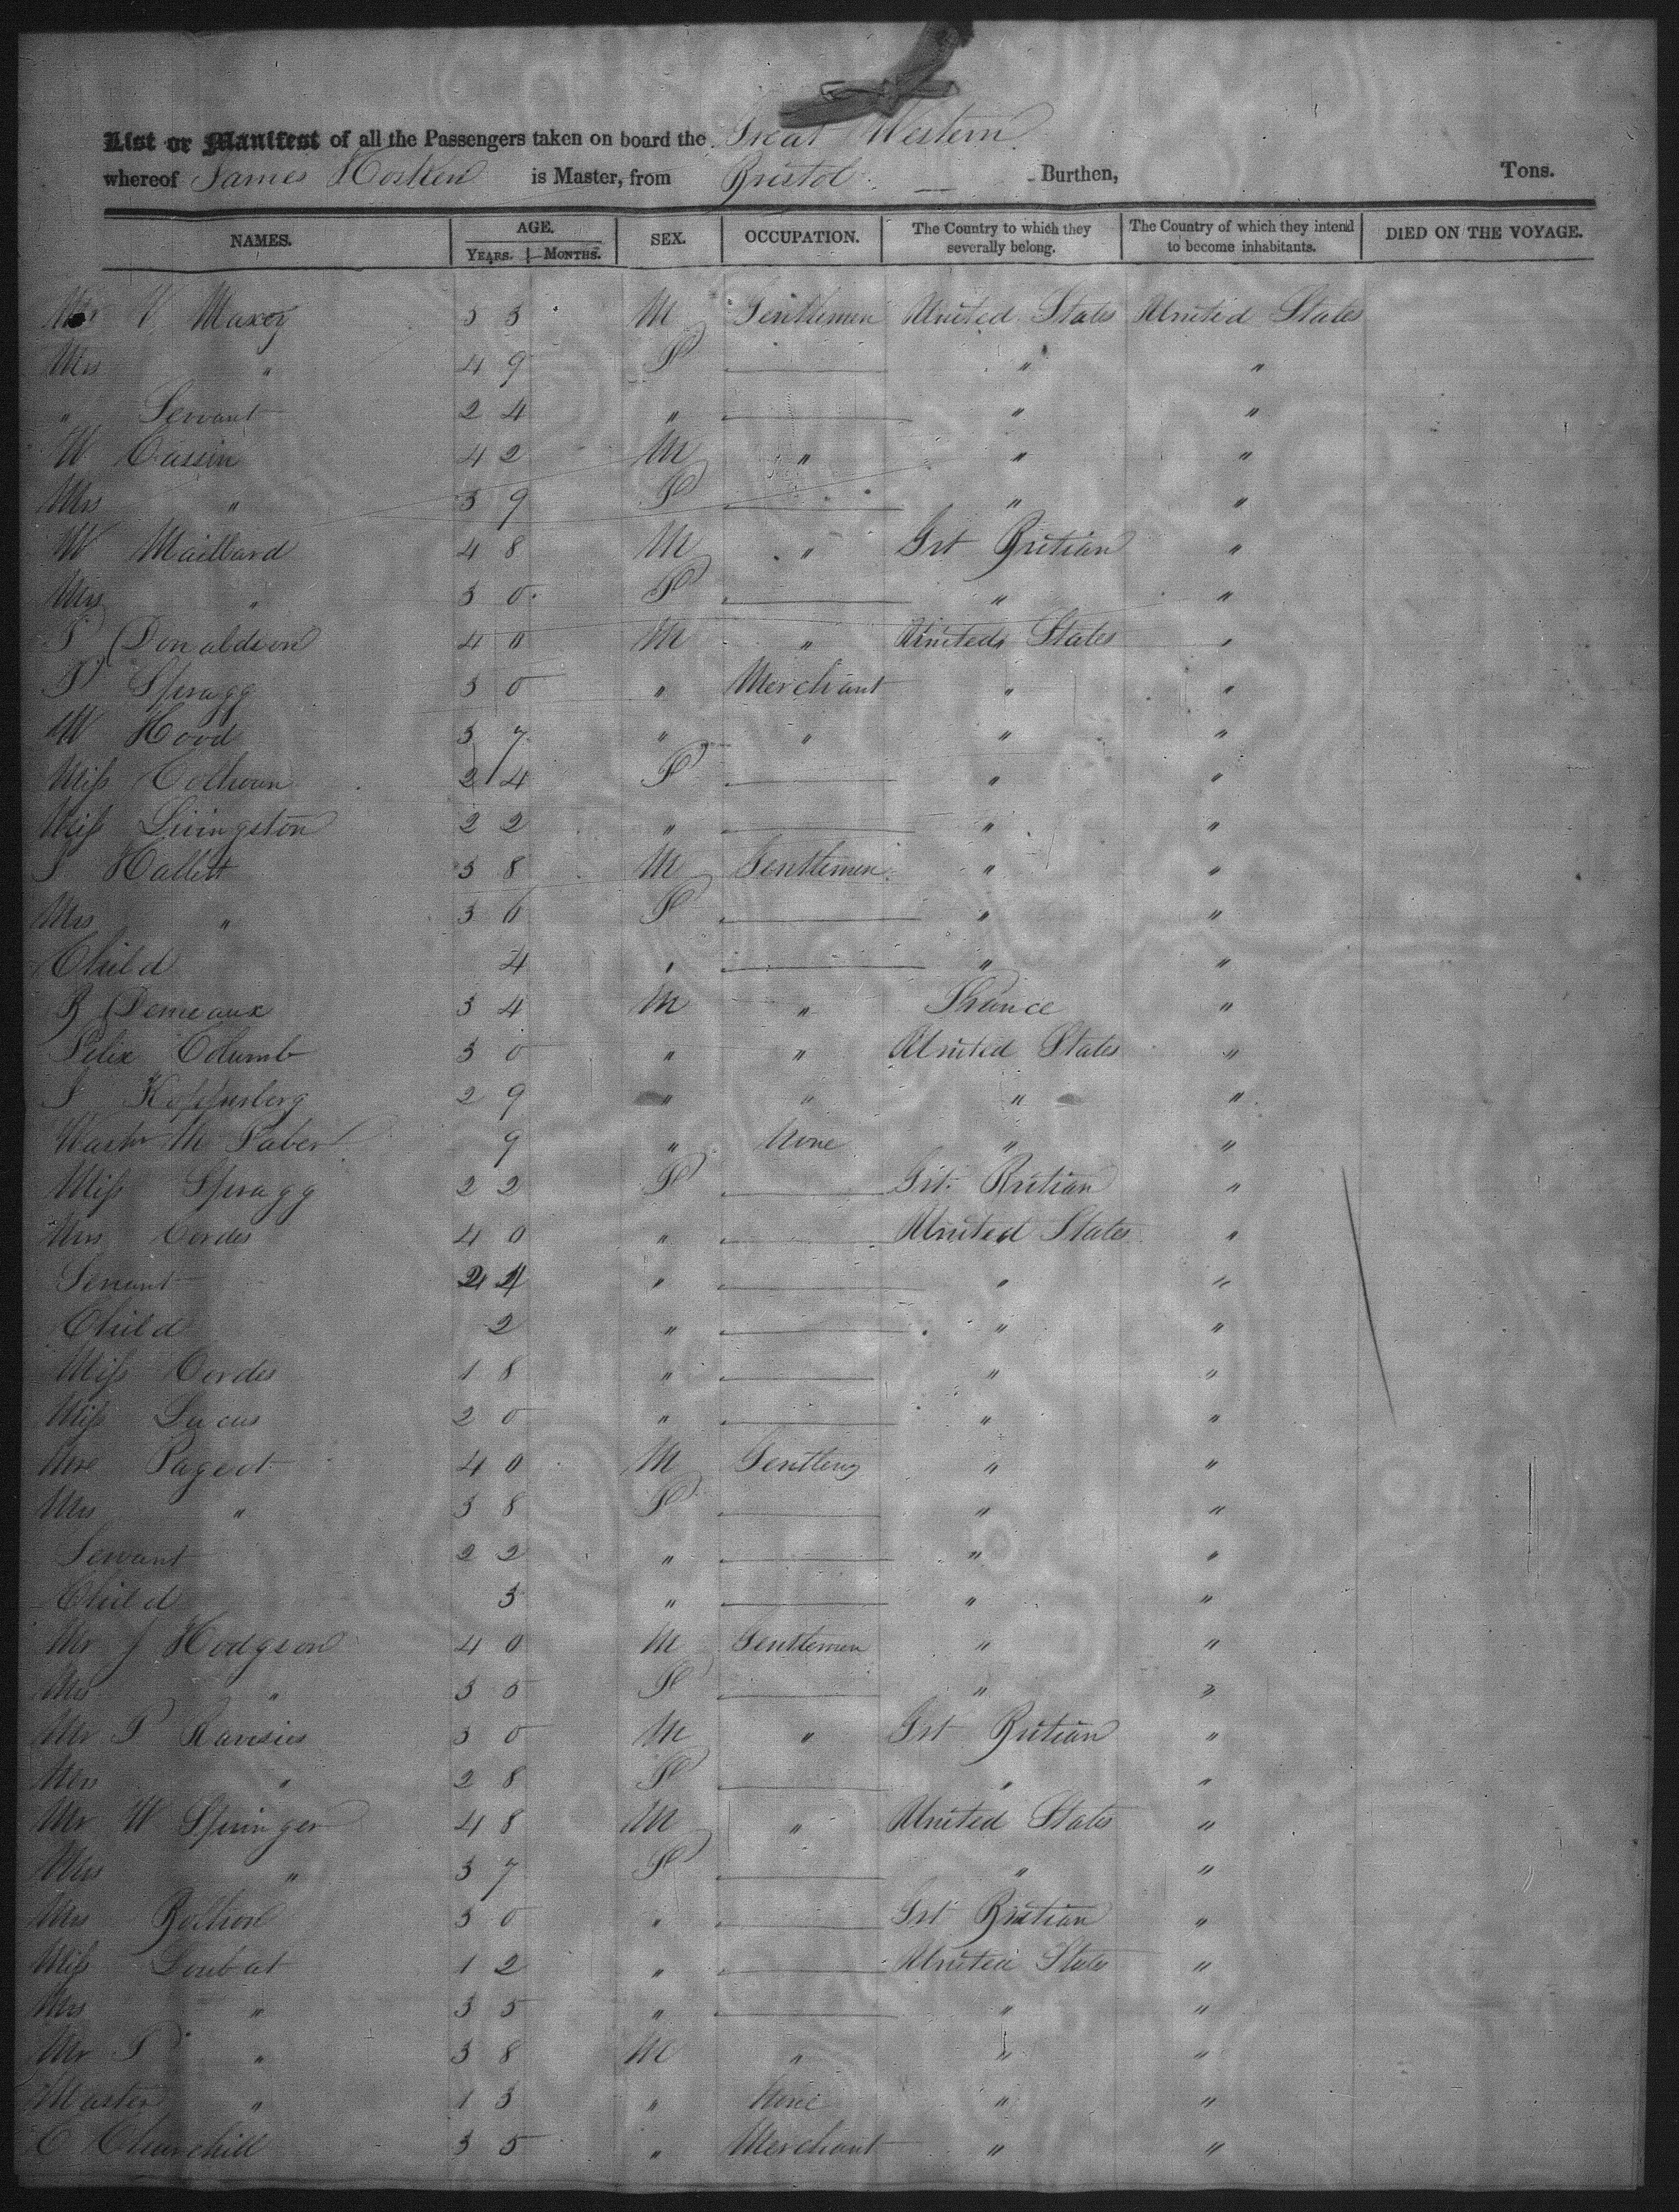 List or Manifest of all the Passengers taken on board the Great Western
whereof James Hosken is Master, from Bristol — Burthen, Tons.
NAMES. AGE. YEARS. MONTHS. SEX. OCCUPATION. The Country to which they severally belong. The Country of which they intend to become inhabitants. DIED ON THE VOYAGE.
V. Maxcy 53 M Gentlemen United States United States
Mrs " 49 F " "
" Servant 24 " " "
W Cassin 42 M " " "
Mrs " 39 F " "
W Maillard 48 M " Grt Britian "
Mrs " 30 F " "
T Donaldson 40 M " United States "
T Spragg 30 " Merchant " "
W Hood 37 " " " "
Miss Colhoun 24 F " "
Miss Livingston 22 " " "
J Hallett 38 M Gentlemen " "
Mrs " 36 F " "
Child 4 " " "
B Demeaux 34 M " France "
Felix Columb 30 " " United States "
29 " " " "
Master M Faber 9 " None " "
Miss Spragg 22 F Grt Britian "
Mrs Cordes 40 " United States "
Servant " " "
Child 2 " " "
Miss Cordes 18 " " "
Miss Lucas 20 " " "
Pageot 40 M " "
Mrs " 38 F " "
Servant 22 " " "
Child 3 " " "
Mr J Hodgson 40 M Gentlemen " "
Mrs " 35 F " "
Mr 30 M " Grt Britian "
Mrs " 28 F " "
Mr W Springer 48 M " United States "
Mrs " 37 F " "
Mrs 30 " Grt Britian "
Miss Loubat 12 " United States "
Mrs " 35 " " "
Mr " 38 M " " "
Master " 13 " None " "
C Churchill 35 " Merchant " "